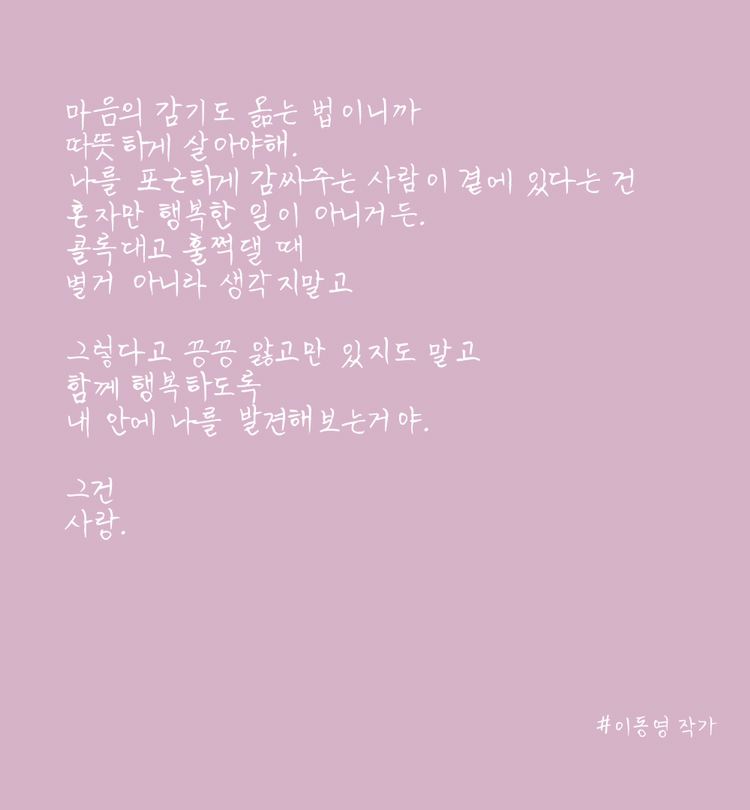 마음의 감기도 옮는 법이니까
따뜻하게 살아야해.
나를 포근하게 감싸주는 사람이 곁에 있다는 건
혼자만 행복한 일이 아니거든.
콜록대고 훌쩍댈 때
별거 아니라 생각지말고
그렇다고 끙끙 앓고만 있지도 말고
함께 행복하도록
내 안에 나를 발견해보는거야.
그건
사랑.
#이동영 작가